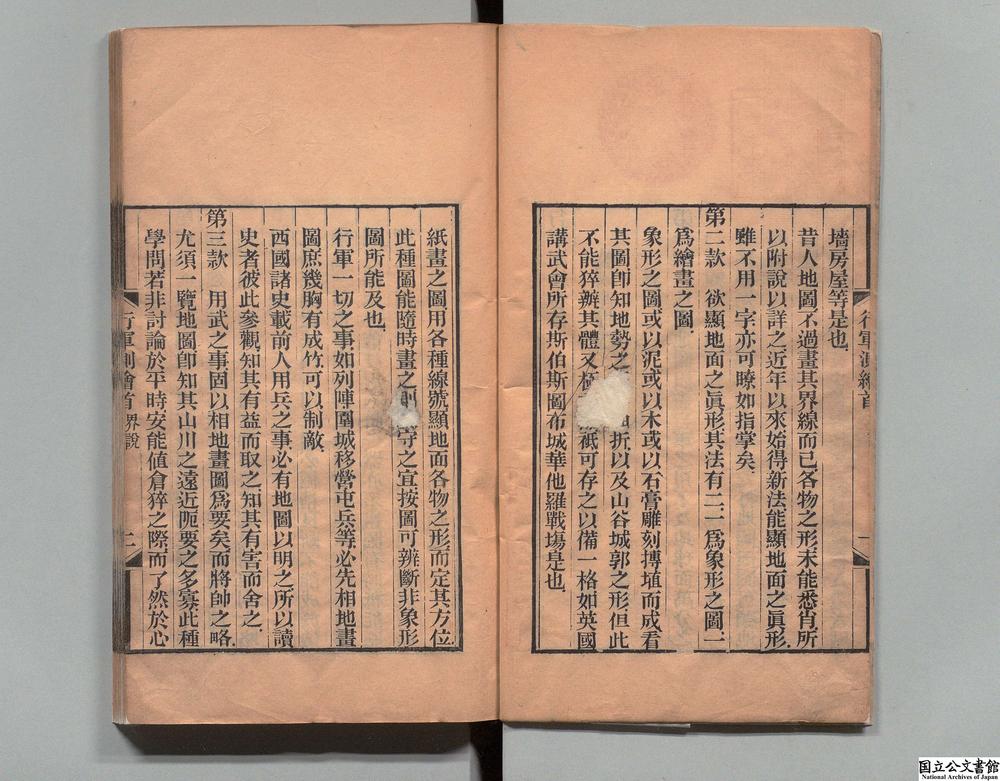 墻房屋等是也
昔人地圖不過畫其界線而已各物之形未能悉肖所
以附說以詳之近年以來始得新法能顯地面之眞形
雖不用一字亦可瞭如指掌矣
第二款　欲顯地面之眞形其法有二一爲象形之圖一
爲繪畫之圖
象形之圖或以泥或以木或以石膏雕刻摶埴而成看
其圖卽知地勢之　折以及山谷城郭之形但此
不能猝辦其體又　祇可存之以備一格如英國
講武會所存斯伯斯圖布城華他羅戰塲是也
行軍測繪首
一
紙畫之圖用各種線號顯地面各物之形而定其方位
此種圖能隨時畫之　守之宜按圖可辨斷非象形
圖所能及也
行軍一切之事如列陣圍城移營屯兵等必先相地畫
圖庶幾胸有成竹可以制敵
西國諸史載前人用兵之事必有地圖以明之所以讀
史者彼此參觀知其有益而取之知其有害而舍之
第三款　用武之事固以相地畫圖爲要矣而將帥之略
尤須一覽地圖卽知其山川之遠近阨要之多寡此種
學問若非討論於平時安能値倉猝之際而了然於心
行軍測繪首　界說
二
国立公文書館
National Archives of Japan